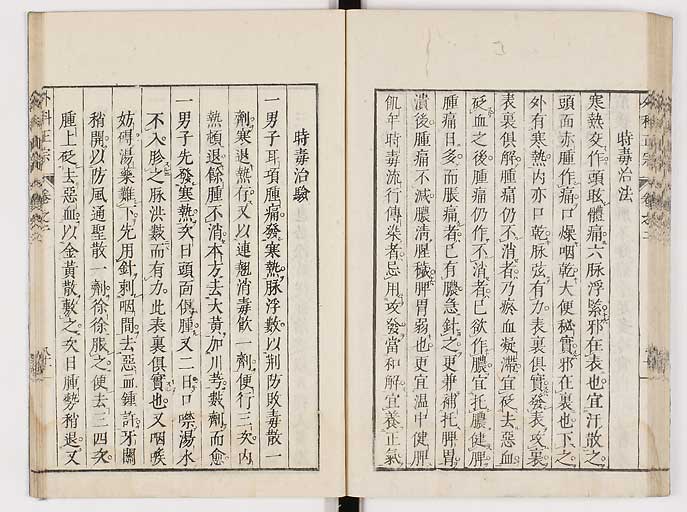 時毒治法
寒熱交作頭眩體痛六脉浮緊邪在表也宜汗散之
頭面赤腫作痛口燥咽乾大便秘實邪在裏也下之
外有寒熱内亦口乾脉弦有力表裏俱實發表攻裏
表裏俱解腫痛仍不消者乃瘀血凝滯宜砭去惡血
砭血之後腫痛仍作不消者已欲作膿宜托膿健脾
腫痛日多而脹痛者已有膿急針之更兼補托脾胃
潰後腫痛不減膿清腥穢脾胃弱也更宜温中健脾
飢年時毒流行傳染者忌用攻發當和解宜養正氣
外科正宗
卷之二
時毒治驗
一男子耳項腫痛發寒熱脉浮数以荆防敗毒散一
劑寒退熱存又以連翹消毒飲一劑便行三次内
熱頓退餘腫不消本方去大黄加川芎数劑而愈
一男子先發寒熱次日頭面俱腫又二日口噤湯水
不入胗之脉洪数而有力此表裏俱實也又咽喉
妨碍湯藥難下先用針刺咽間去惡血鍾許牙關
稍開以防風通聖散一劑徐徐服之便去三四次
腫上砭去惡血以金黄散敷之次日腫勢稍退又